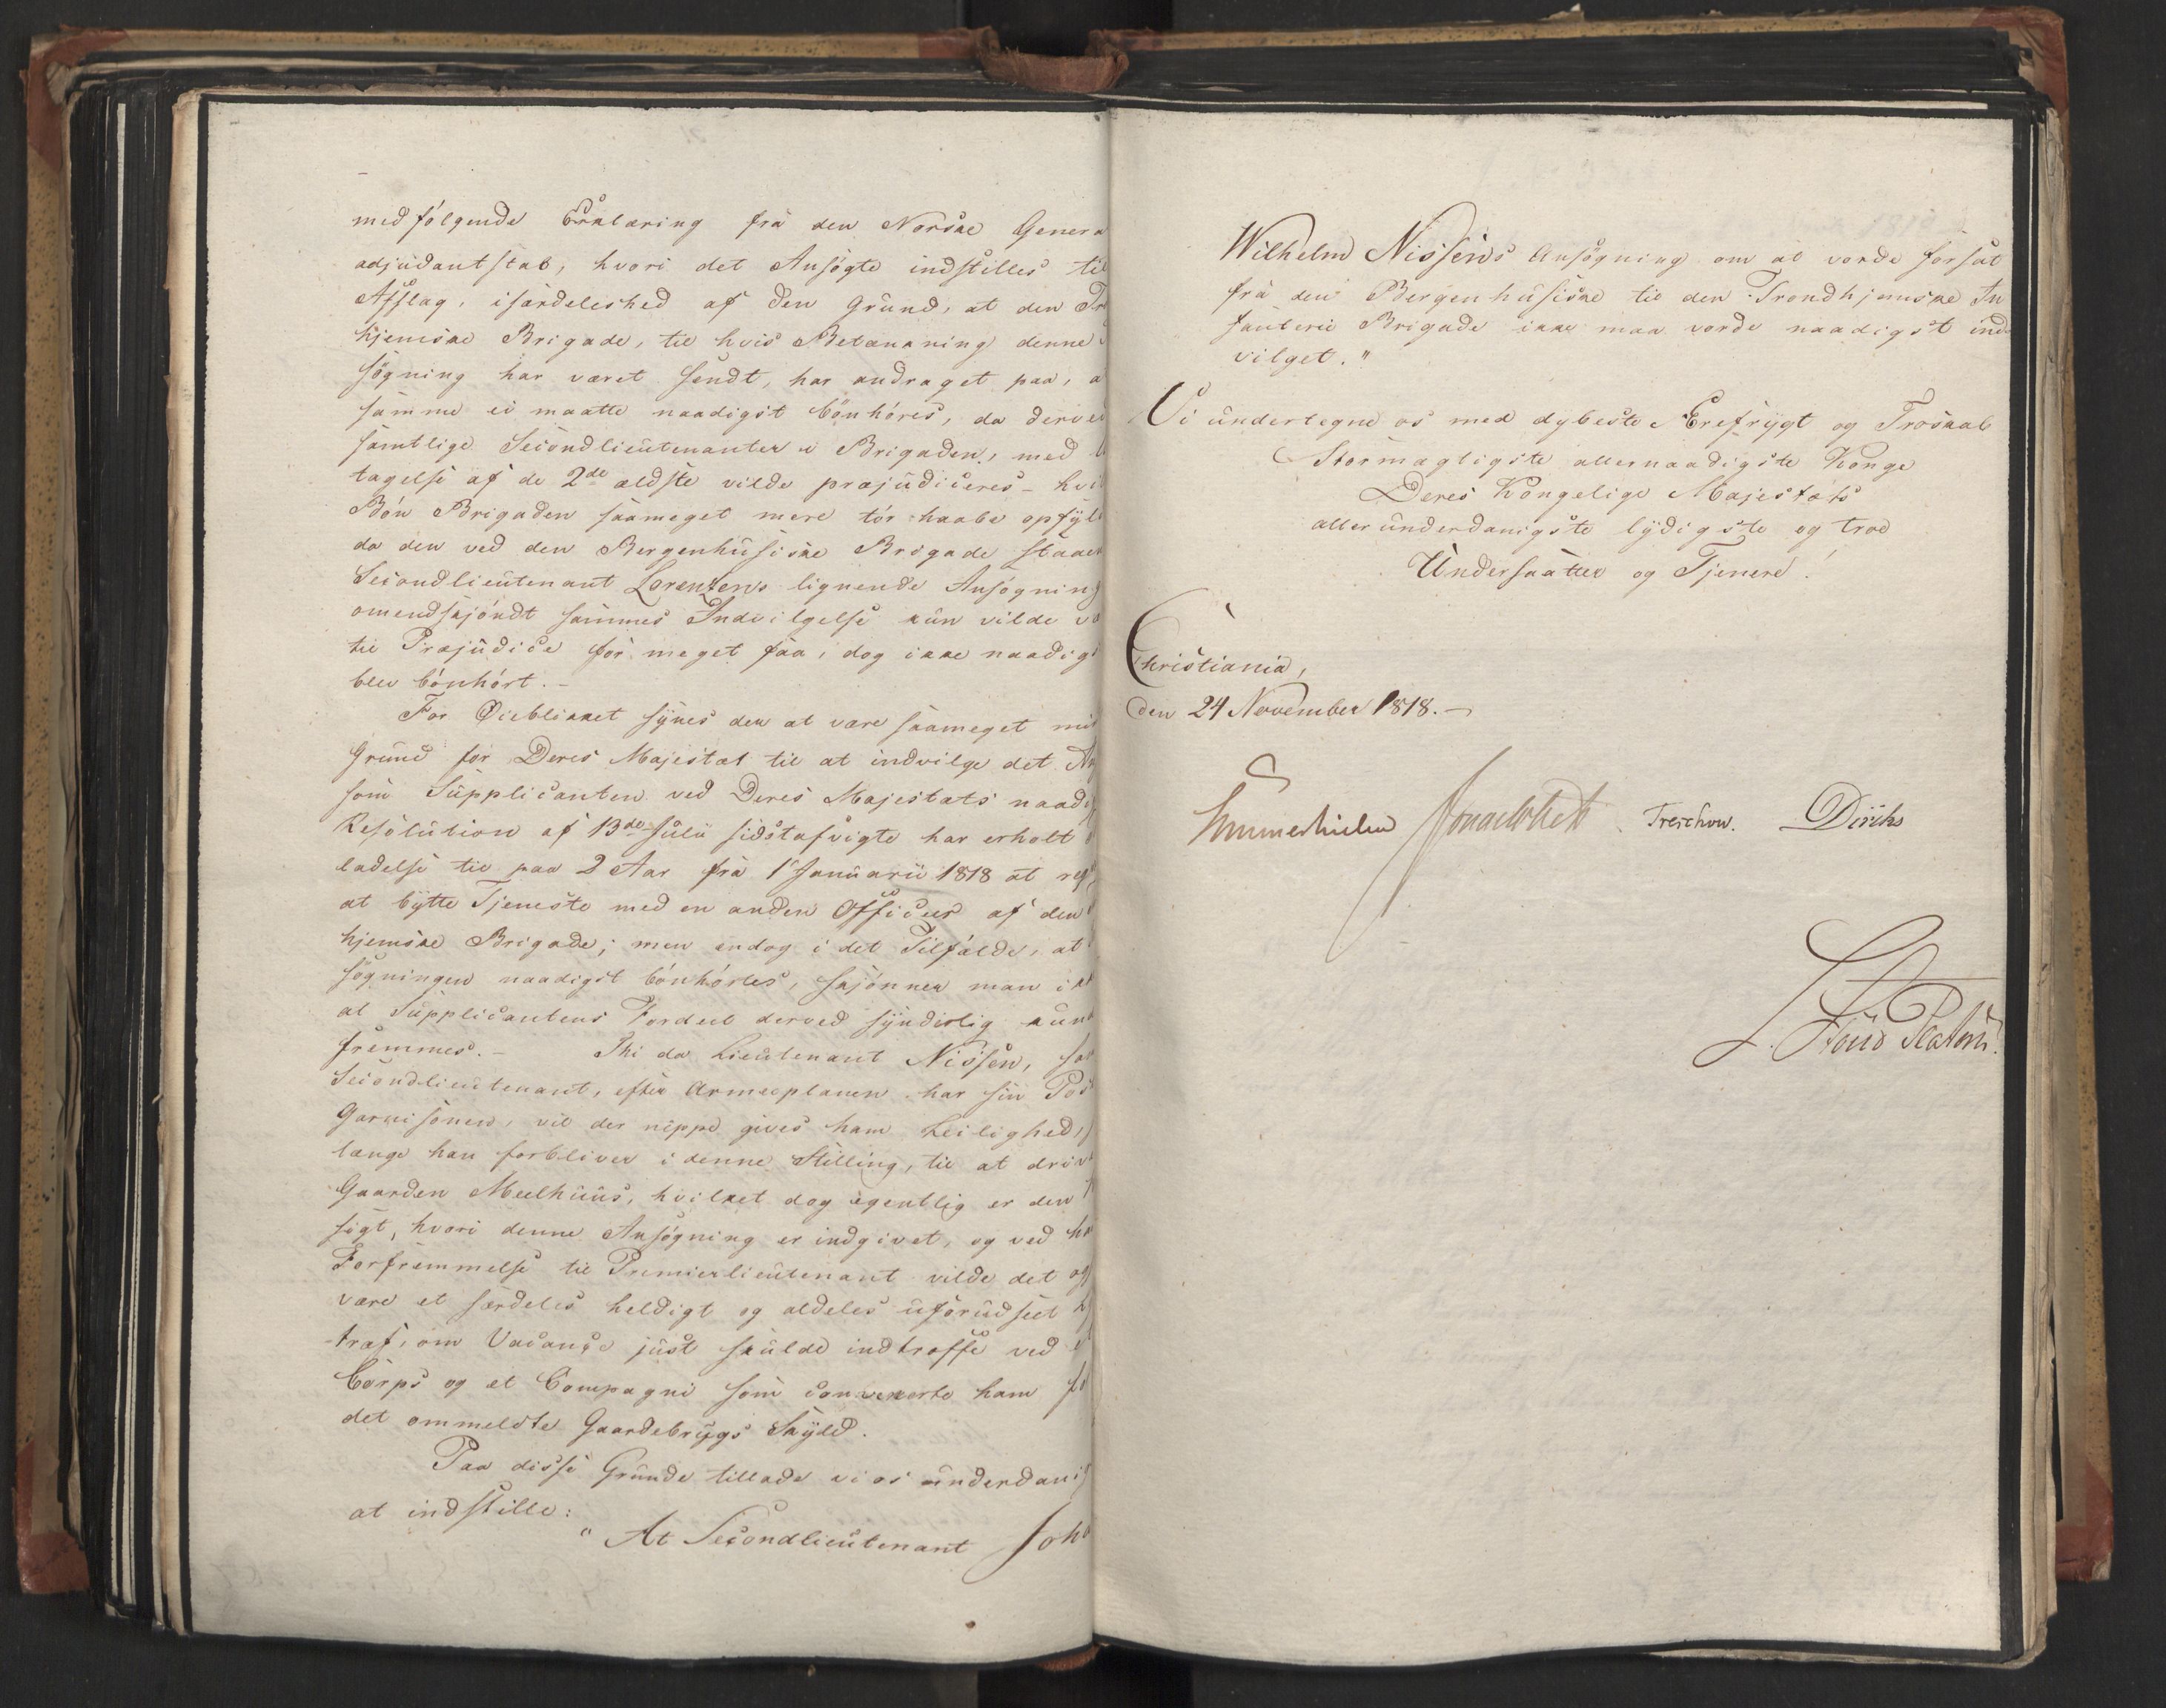 medfølgende Erklæring fra den Norske Genera
adjudantstab, hvori det Ansøgte indstilles til
Afslag, isærdeleshed af den Grund, at den Tr
hjemske Brigade, til hvis Betænkning denne
søgning har været sendt, har andraget paa, a
samme ei maatte naadigst bönhöres, da derve
samtlige Secondlieutenanter i Brigaden, med
tagelse af de 2de ældste vilde præjudiceres - hvi
Bön Brigaden saameget mere tör haabe opfyl
da den ved den Bergenhusiske Brigade staaen
Secondlieutenant Lorentzens lignende Ansøgning
omendskjöndt sammes Indvilgelse kun vilde væ
til Præjudice for meget faa, dog ikke naadig
blev bönhört. -
For Øieblikket synes der at være saameget mi
Grund for Deres Majestæt til at indvilge det An
som Supplicanten ved Deres Majestæts naadi
Resolution af 13de Julii sidstafvigte har erholt
ladelse til paa 2 Aar fra 1 Januarii 1818 at reg
at bytte Tjeneste med en anden Officeer af den
hjemske Brigade; men endog i det Tilfælde, at
søgningen naadigst bönhörtes, skjönner man ik
at Supplicantens Fordeel derved synderlig kun
fremmes. - Thi da Lieutenant Nissen, som
Secondlieutenant, efter Armeeplanen har sin Pos
Garnisonen, vil der neppe gives ham Leilighed,
længe han forbliver i denne Stilling, til at driv
Gaarden Meelhuus, hvilket dog egentlig er den
sigt, hvori denne Ansøgning er indgivet, og ved ha
Forfremmelse til Premierlieutenant vilde det og
være et særdeles heldigt og aldeles uforudseet
træf, om Vacançe just skulde indtræffe ved e
Corps og et Compagni som convenerte ham fo
det ommeldte Gaardebrugs Skyld.
Paa disse Grunde tillade vi os underdanig
at indstille:
"At Secondlieutenant Joh
Wilhelm Nissens Ansøgning om at vorde forsat
fra den Bergenhusiske til den Trondhjemske In
fanterie Brigade ikke maa vorde naadigst ind
vilget."
Vi undertegne os med dybeste Ærefrygt og Troskab
Stormægtigste allernaadigste Konge
Deres Kongelige Majestæts
allerunderdanigste lydigste og troe
Undersaatter og Tjenere!
Christiania,
den 24 November 1818. -
Sommerhielm Treschow. Diriks